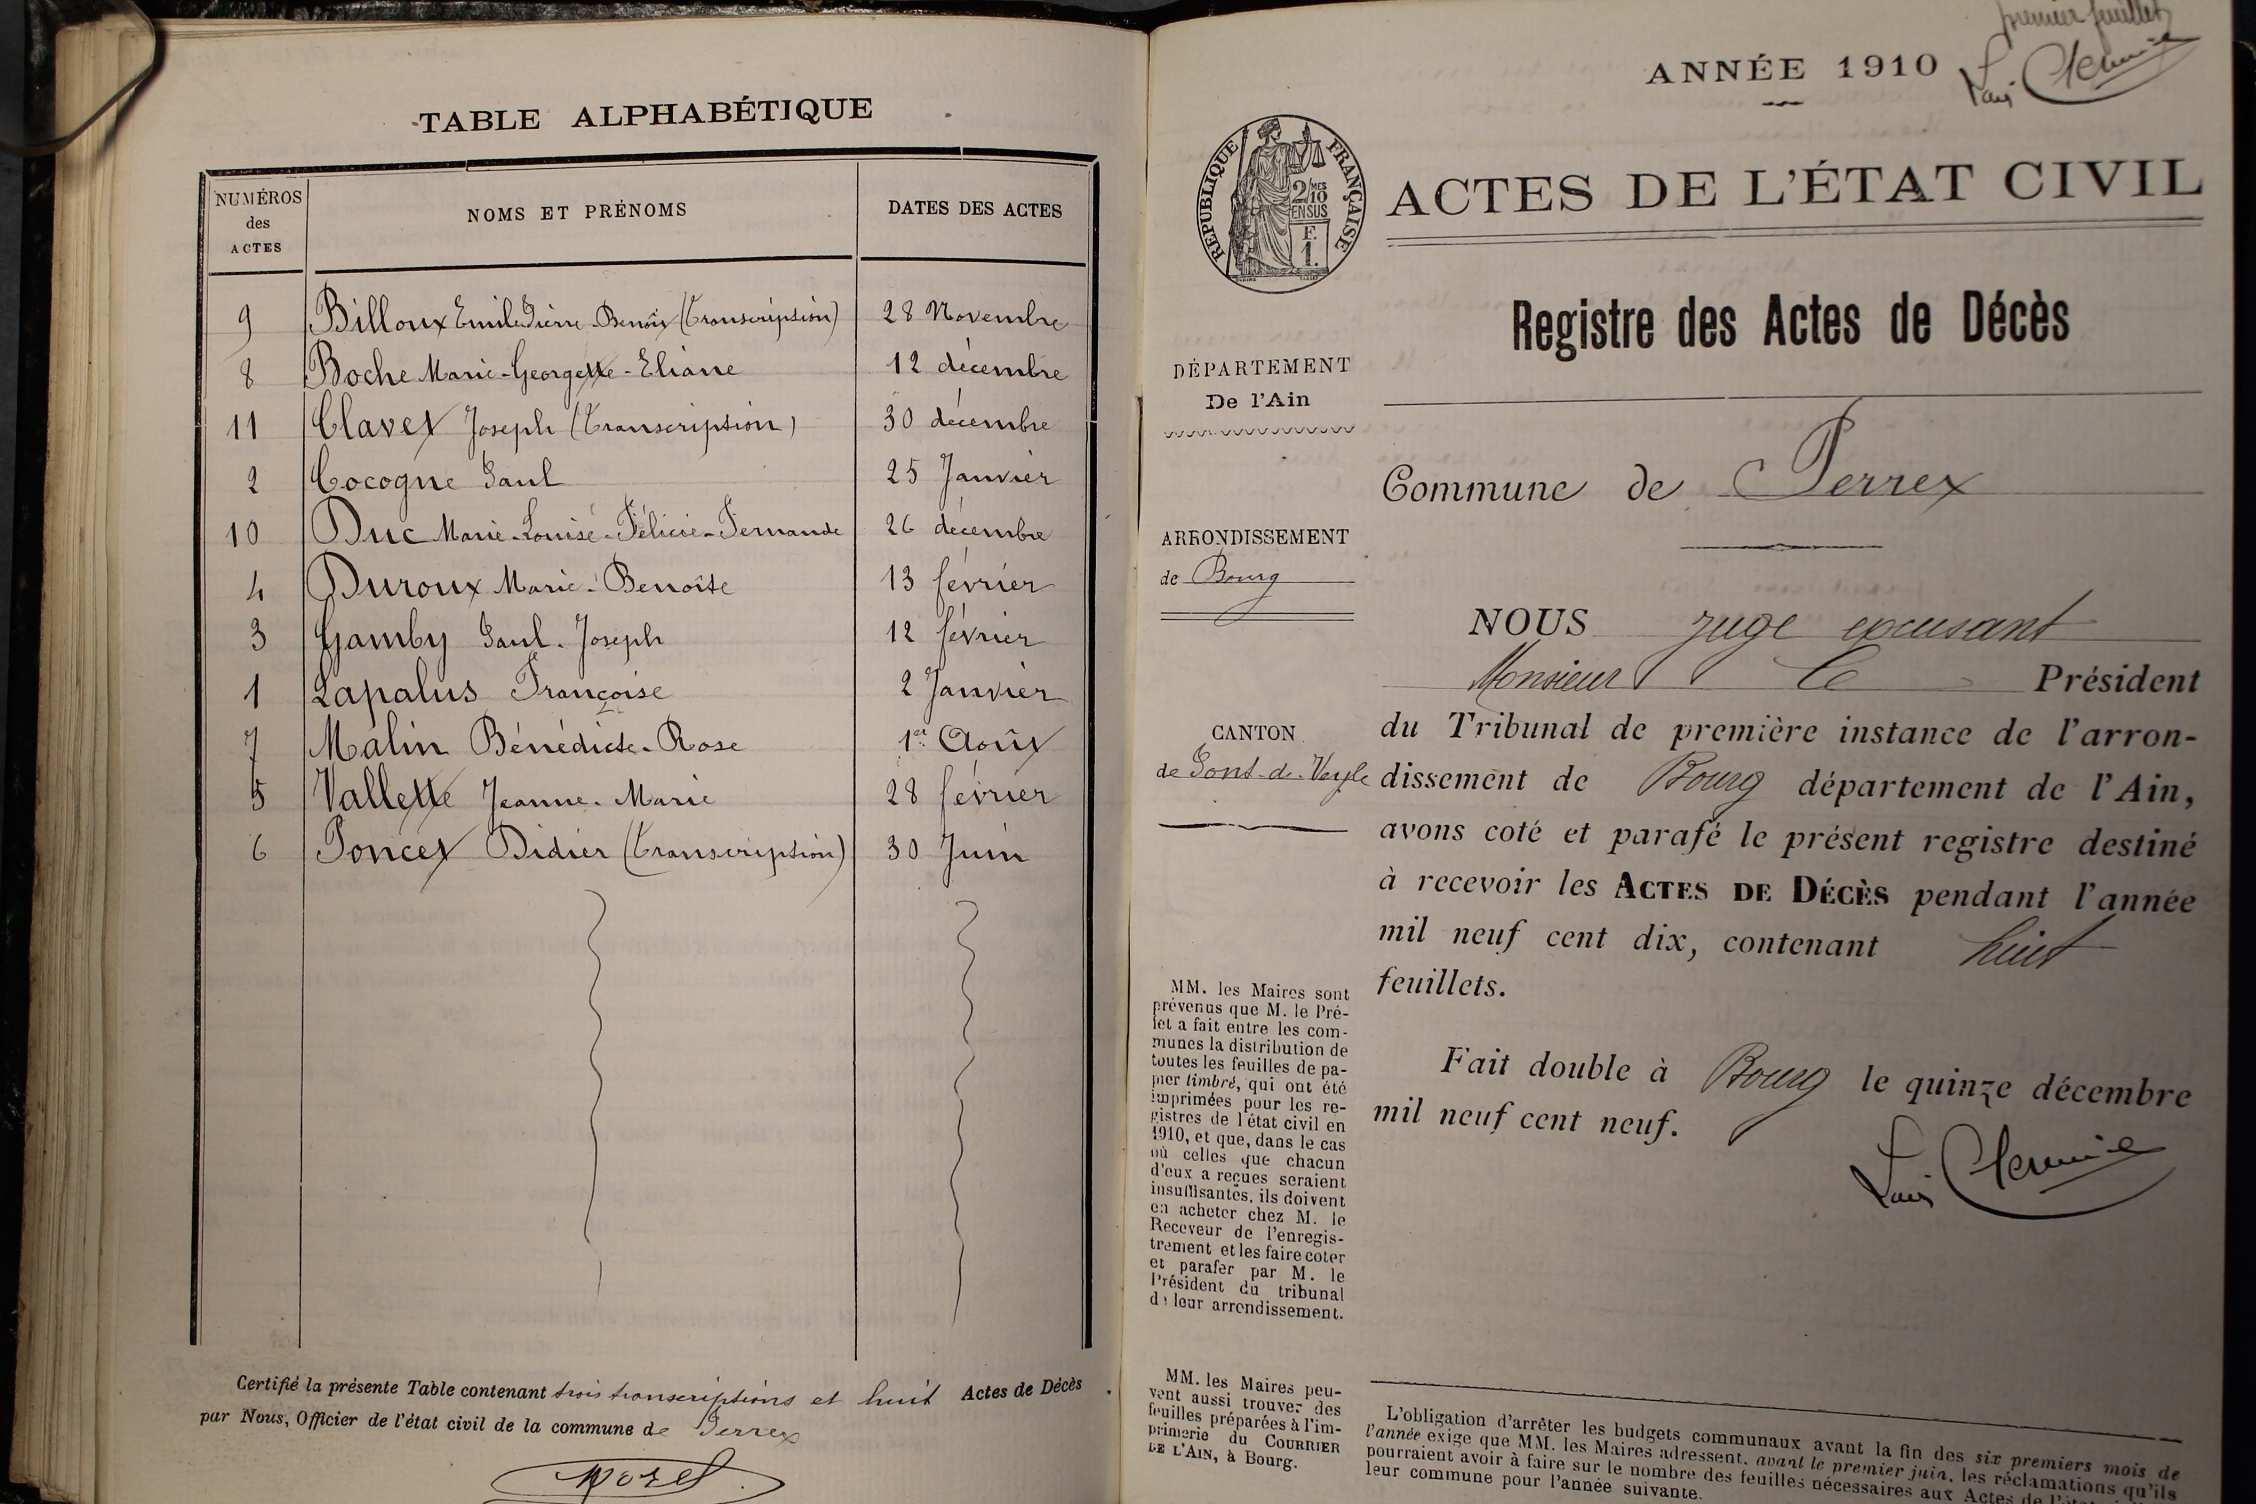 TABLE ALPHABÉTIQUE
NUMÉROS des ACTES NOMS ET PRÉNOMS DATES DES ACTES
9 Billoux Emile Pierre-Benoît (Transcription) 28 Novembre
8 Boche Marie-Georgette-Eliane 12 décembre
11 Clavet Joseph (Transcription) 30 décembre
2 Cocogne Paul 25 Janvier
10 Duc Marie-Louise-Félicie-Fernande 26 décembre
4 Duroux Marie-Benoîte 13 février
3 Gamby Paul-Joseph 12 février
1 Lapalus Françoise 2 Janvier
7 Malin Bénédicte-Rose 1er Août
5 Vallette Jeanne-Marie 28 février
6 Poncet Didier (Transcription) 30 Juin
Certifié la présente Table contenant trois transcriptions et huit Actes de Décès
par Nous, Officier de l'état civil de la commune de Perrex
Morel
premier feuillet
ANNÉE 1910
Louis
RÉPUBLIQUE FRANÇAISE
2/10 MES
EN SUS
F.
1.
ACTES DE L'ÉTAT CIVIL
Registre des Actes de Décès
DÉPARTEMENT
De l'Ain
Commune de Perrex
ARRONDISSEMENT
de Bourg
CANTON
de Pont-de-Veyle
NOUS juge excusant
Monsieur le Président
du Tribunal de première instance de l'arron-
dissement de Bourg département de l'Ain,
avons coté et parafé le présent registre destiné
à recevoir les ACTES DE DÉCÈS pendant l'année
mil neuf cent dix, contenant huit
feuillets.
Fait double à Bourg le quinze décembre
mil neuf cent neuf.
Louis
MM. les Maires sont
prévenus que M. le Pré-
fet a fait entre les com-
munes la distribution de
toutes les feuilles de pa-
pier timbré, qui ont été
imprimées pour les re-
gistres de l'état civil en
1910, et que, dans le cas
où celles que chacun
d'eux a reçues seraient
insuffisantes, ils doivent
en acheter chez M. le
Receveur de l'enregis-
trement et les faire coter
et parafer par M. le
Président du tribunal
de leur arrondissement.
MM. les Maires peu-
vent aussi trouver des
feuilles préparées à l'im-
primerie du COURRIER
DE L'AIN, à Bourg.
L'obligation d'arrêter les budgets communaux avant la fin des six premiers mois de
l'année exige que MM. les Maires adressent, avant le premier juin, les réclamations qu'ils
pourraient avoir à faire sur le nombre des feuilles nécessaires aux Actes de l'état
leur commune pour l'année suivante.